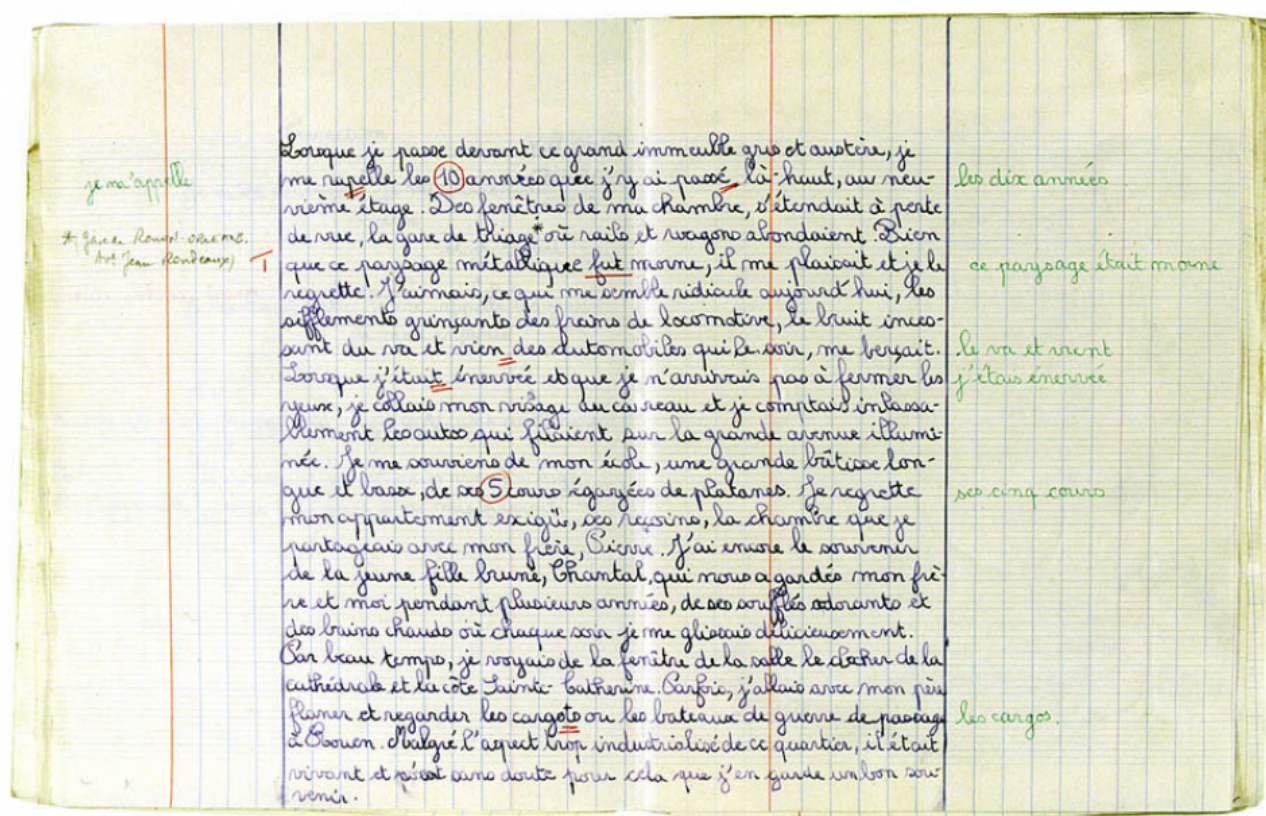 Lorsque je passe devant ce grand immeuble gris et austère, je
je m'appelle
me rapelle les 10 années que j'y ai passé, là-haut, au neu-
les dix années
vième étage. Des fenêtres de ma chambre, s'étendait à perte
de vue, la gare de triage* où rails et wagons abondaient. Bien
* Gare Rouen-
Ave Jean Rondeaux)
T
que ce paysage métallique fut morne, il me plaisait et je le
ce paysage était morne
regrette. J'aimais, ce qui me semble ridicule aujourd'hui, les
sifflements grinçants des freins de locomotive, le bruit inces-
sant du va et vien des automobiles qui le soir, me berçait.
le va et vient
Lorsque j'était énervée et que je n'arrivais pas à fermer les
j'étais énervée
yeux, je collais mon visage au carreau et je comptais inlassa-
blement les autos qui filaient sur la grande avenue illumi-
née. Je me souviens de mon école, une grande bâtisse lon-
gue et basse, de ses 5 cours égayées de platanes. Je regrette
ses cinq cours
mon appartement exigü, ses recoins, la chambre que je
partageais avec mon frère, Pierre. J'ai encore le souvenir
de la jeune fille brune, Chantal, qui nous a gardés mon frè-
re et moi pendant plusieurs années, de ses soufflés odorants et
des bains chauds où chaque soir je me glissais délicieusement.
Par beau temps, je voyais de la fenêtre de la salle le clocher de la
cathédrale et la côte Sainte-Catherine. Parfois, j'allais avec mon père
flaner et regarder les cargots ou les bateaux de guerre de passage
les cargos.
à Rouen. Malgré l'aspect trop industrialisé de ce quartier, il était
vivant et c'est sans doute pour cela que j'en garde un bon sou-
venir.